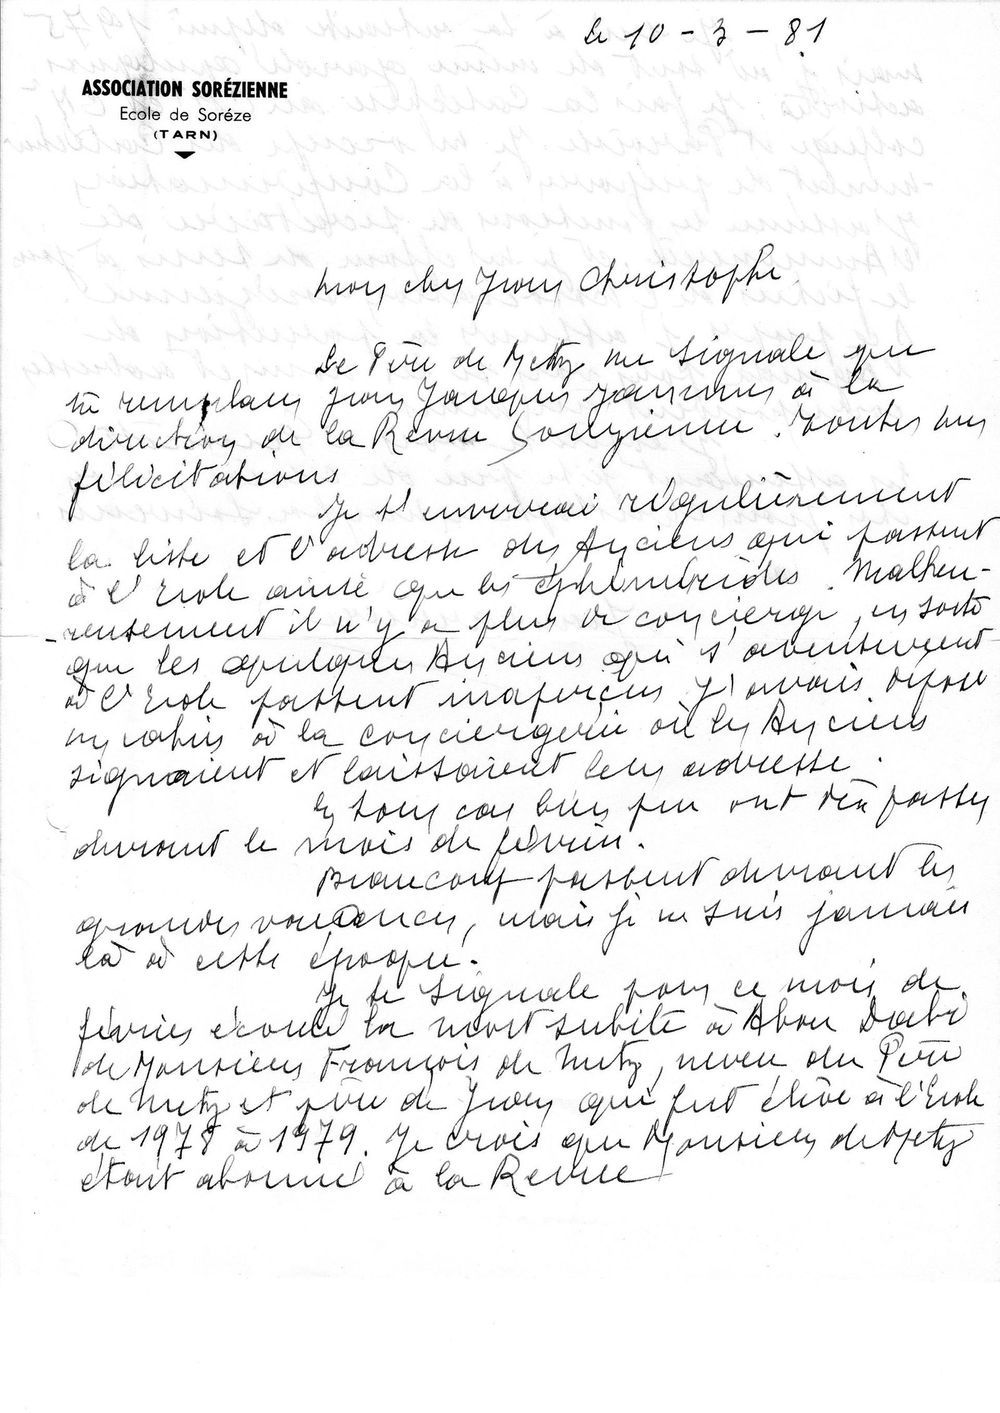 le 10-3-81
ASSOCIATION SORÉZIENNE
Ecole de Soréze
(TARN)
Mon cher Jean Christophe
Le Père de Metz me signale que
tu remplaces Jean Jacques à la
direction de la Revue Sorézienne. Toutes mes
félicitations
Je t'enverrai régulièrement
la liste et l'adresse des Anciens qui passent
à l'Ecole ainsi que les éphémérides. Malheu-
reusement il n'y a plus de concierge, en sorte
que les quelques Anciens qui s'aventurent
à l'Ecole passent inaperçus. J'avais déposé
un cahier à la conciergerie où les Anciens
signaient et laissaient leur adresse.
En tous cas bien peu ont dû passer
durant le mois de février.
Beaucoup passent durant les
grandes vacances, mais je ne suis jamais
là à cette époque.
Je te signale pour ce mois de
février écoulé la mort subite à Abou Dabi
de Monsieur François de Metz, neveu du Père
de Metz et père de Jean qui fut élève à l'Ecole
de 1978 à 1979. Je crois que Monsieur de Metz
était abonné à la Revue